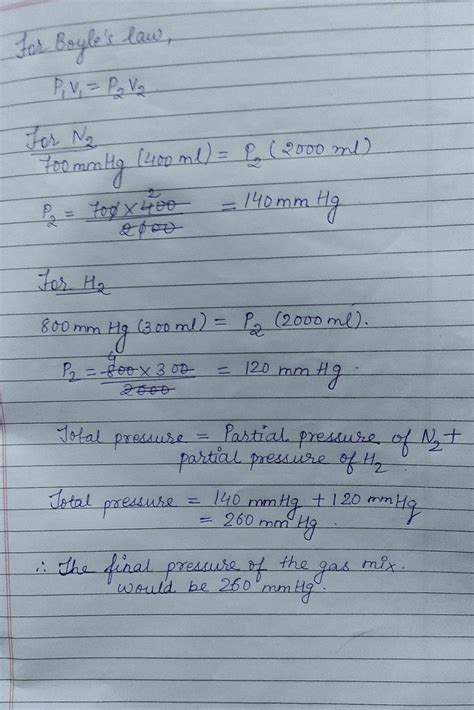 For Boyle's law,
P₁V₁ = P₂V₂
For N₂
700 mmHg (400 ml) = P₂ (2000 ml)
P₂ = 700 × 400 / 2000 = 140 mm Hg
2
For H₂
800 mm Hg (300 ml) = P₂ (2000 ml).
P₂ = 800 × 300 / 2000 = 120 mm Hg.
4
Total pressure = Partial pressure of N₂ +
partial pressure of H₂.
Total pressure = 140 mmHg + 120 mmHg
= 260 mm Hg.
∴ The final pressure of the gas mix.
would be 260 mmHg.